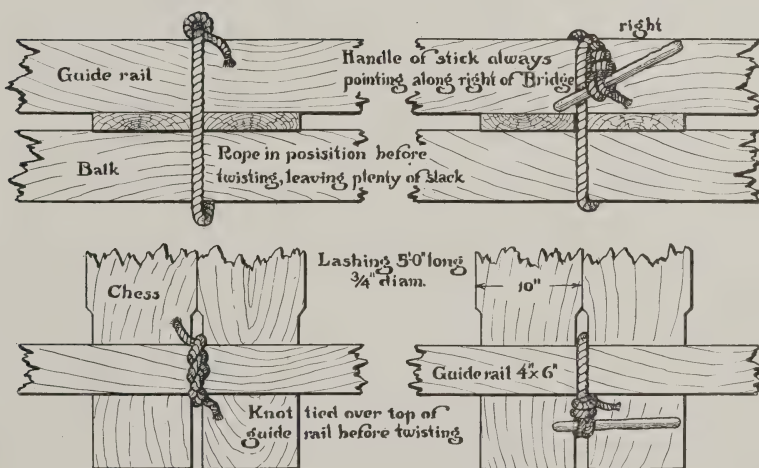 right
Guide rail
Handle of stick always
pointing along right of Bridge
Balk
Rope in posisition before
twisting, leaving plenty of slack
Chess
Lashing 5'0" long
3/4" diam.
10"
Guide rail 4"x 6"
Knot tied over top of
guide rail before twisting